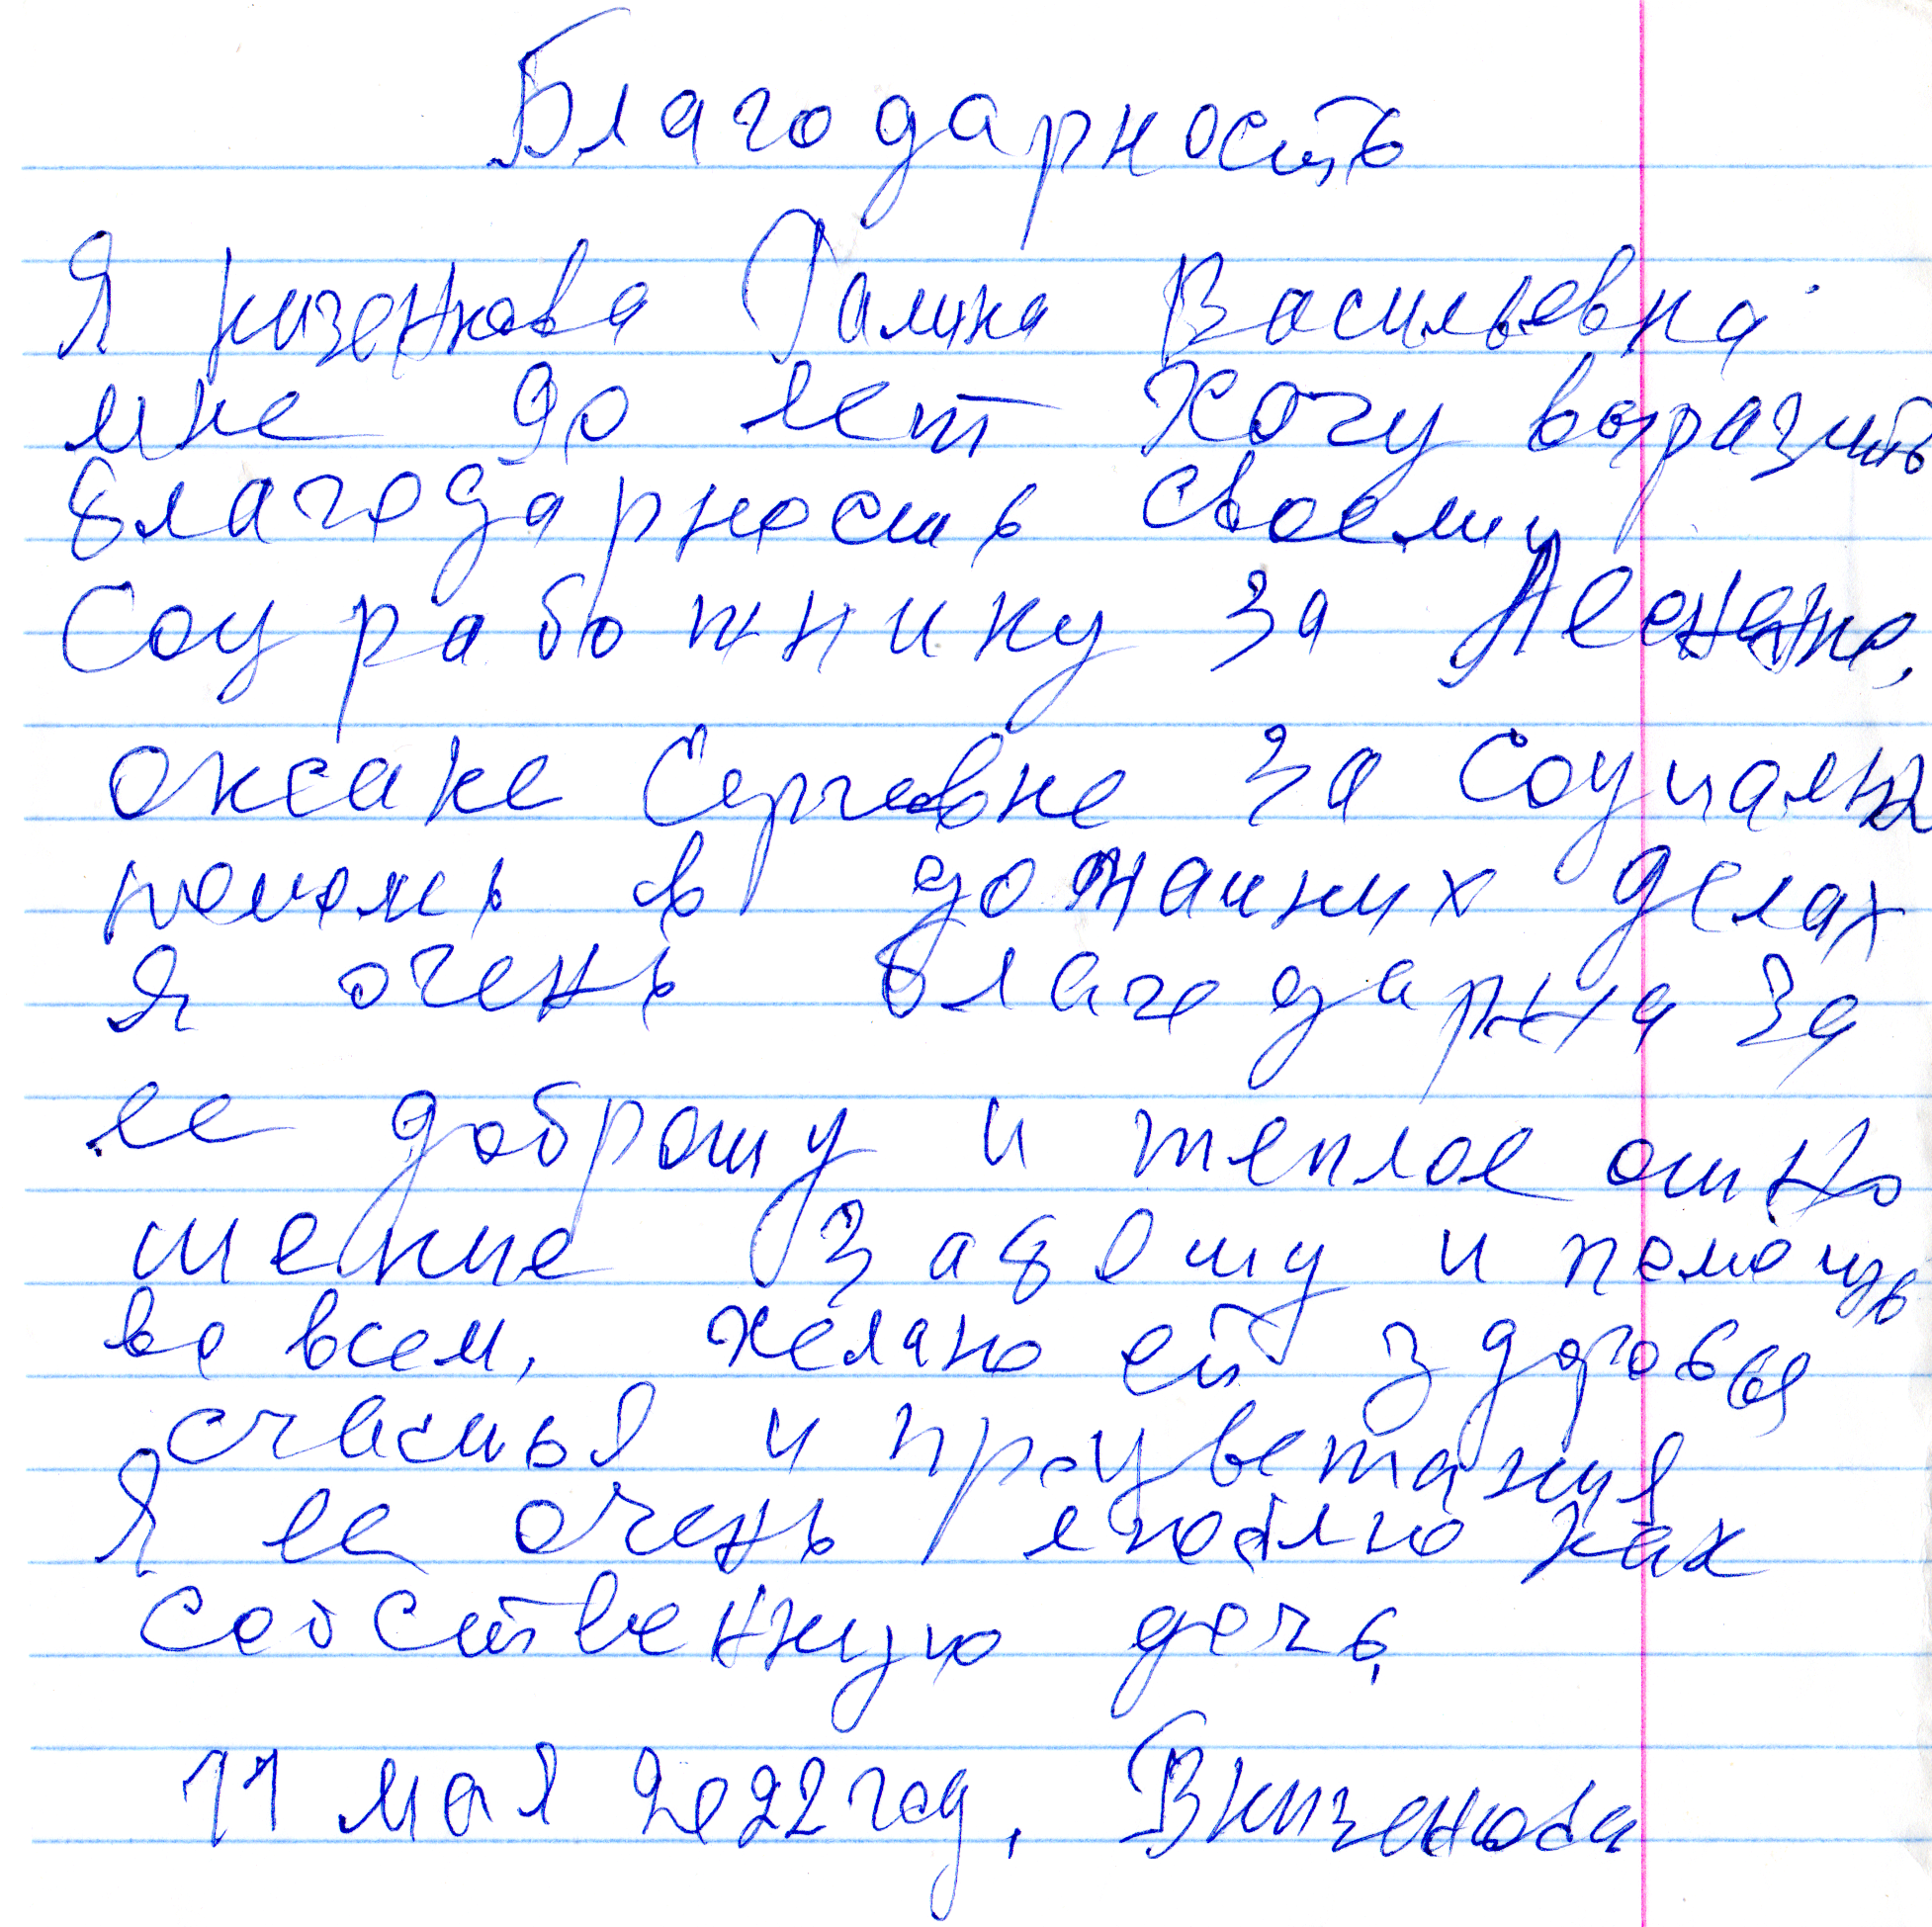 Благодарность
Я кизенкова Галина Васильевна
мне 90 лет Хочу выразить
благодарность своему
Соц работнику за
оксане Сергевне за Социальн
помомь в домашних делах
я очень благодарна за
ее доброту и теплое отно
шение Заботу и помощь
во всем, желаю ей здоровья
счастья и процветания
Я ее очень люблю как
собственную дочь,
11 мая 2022 год,